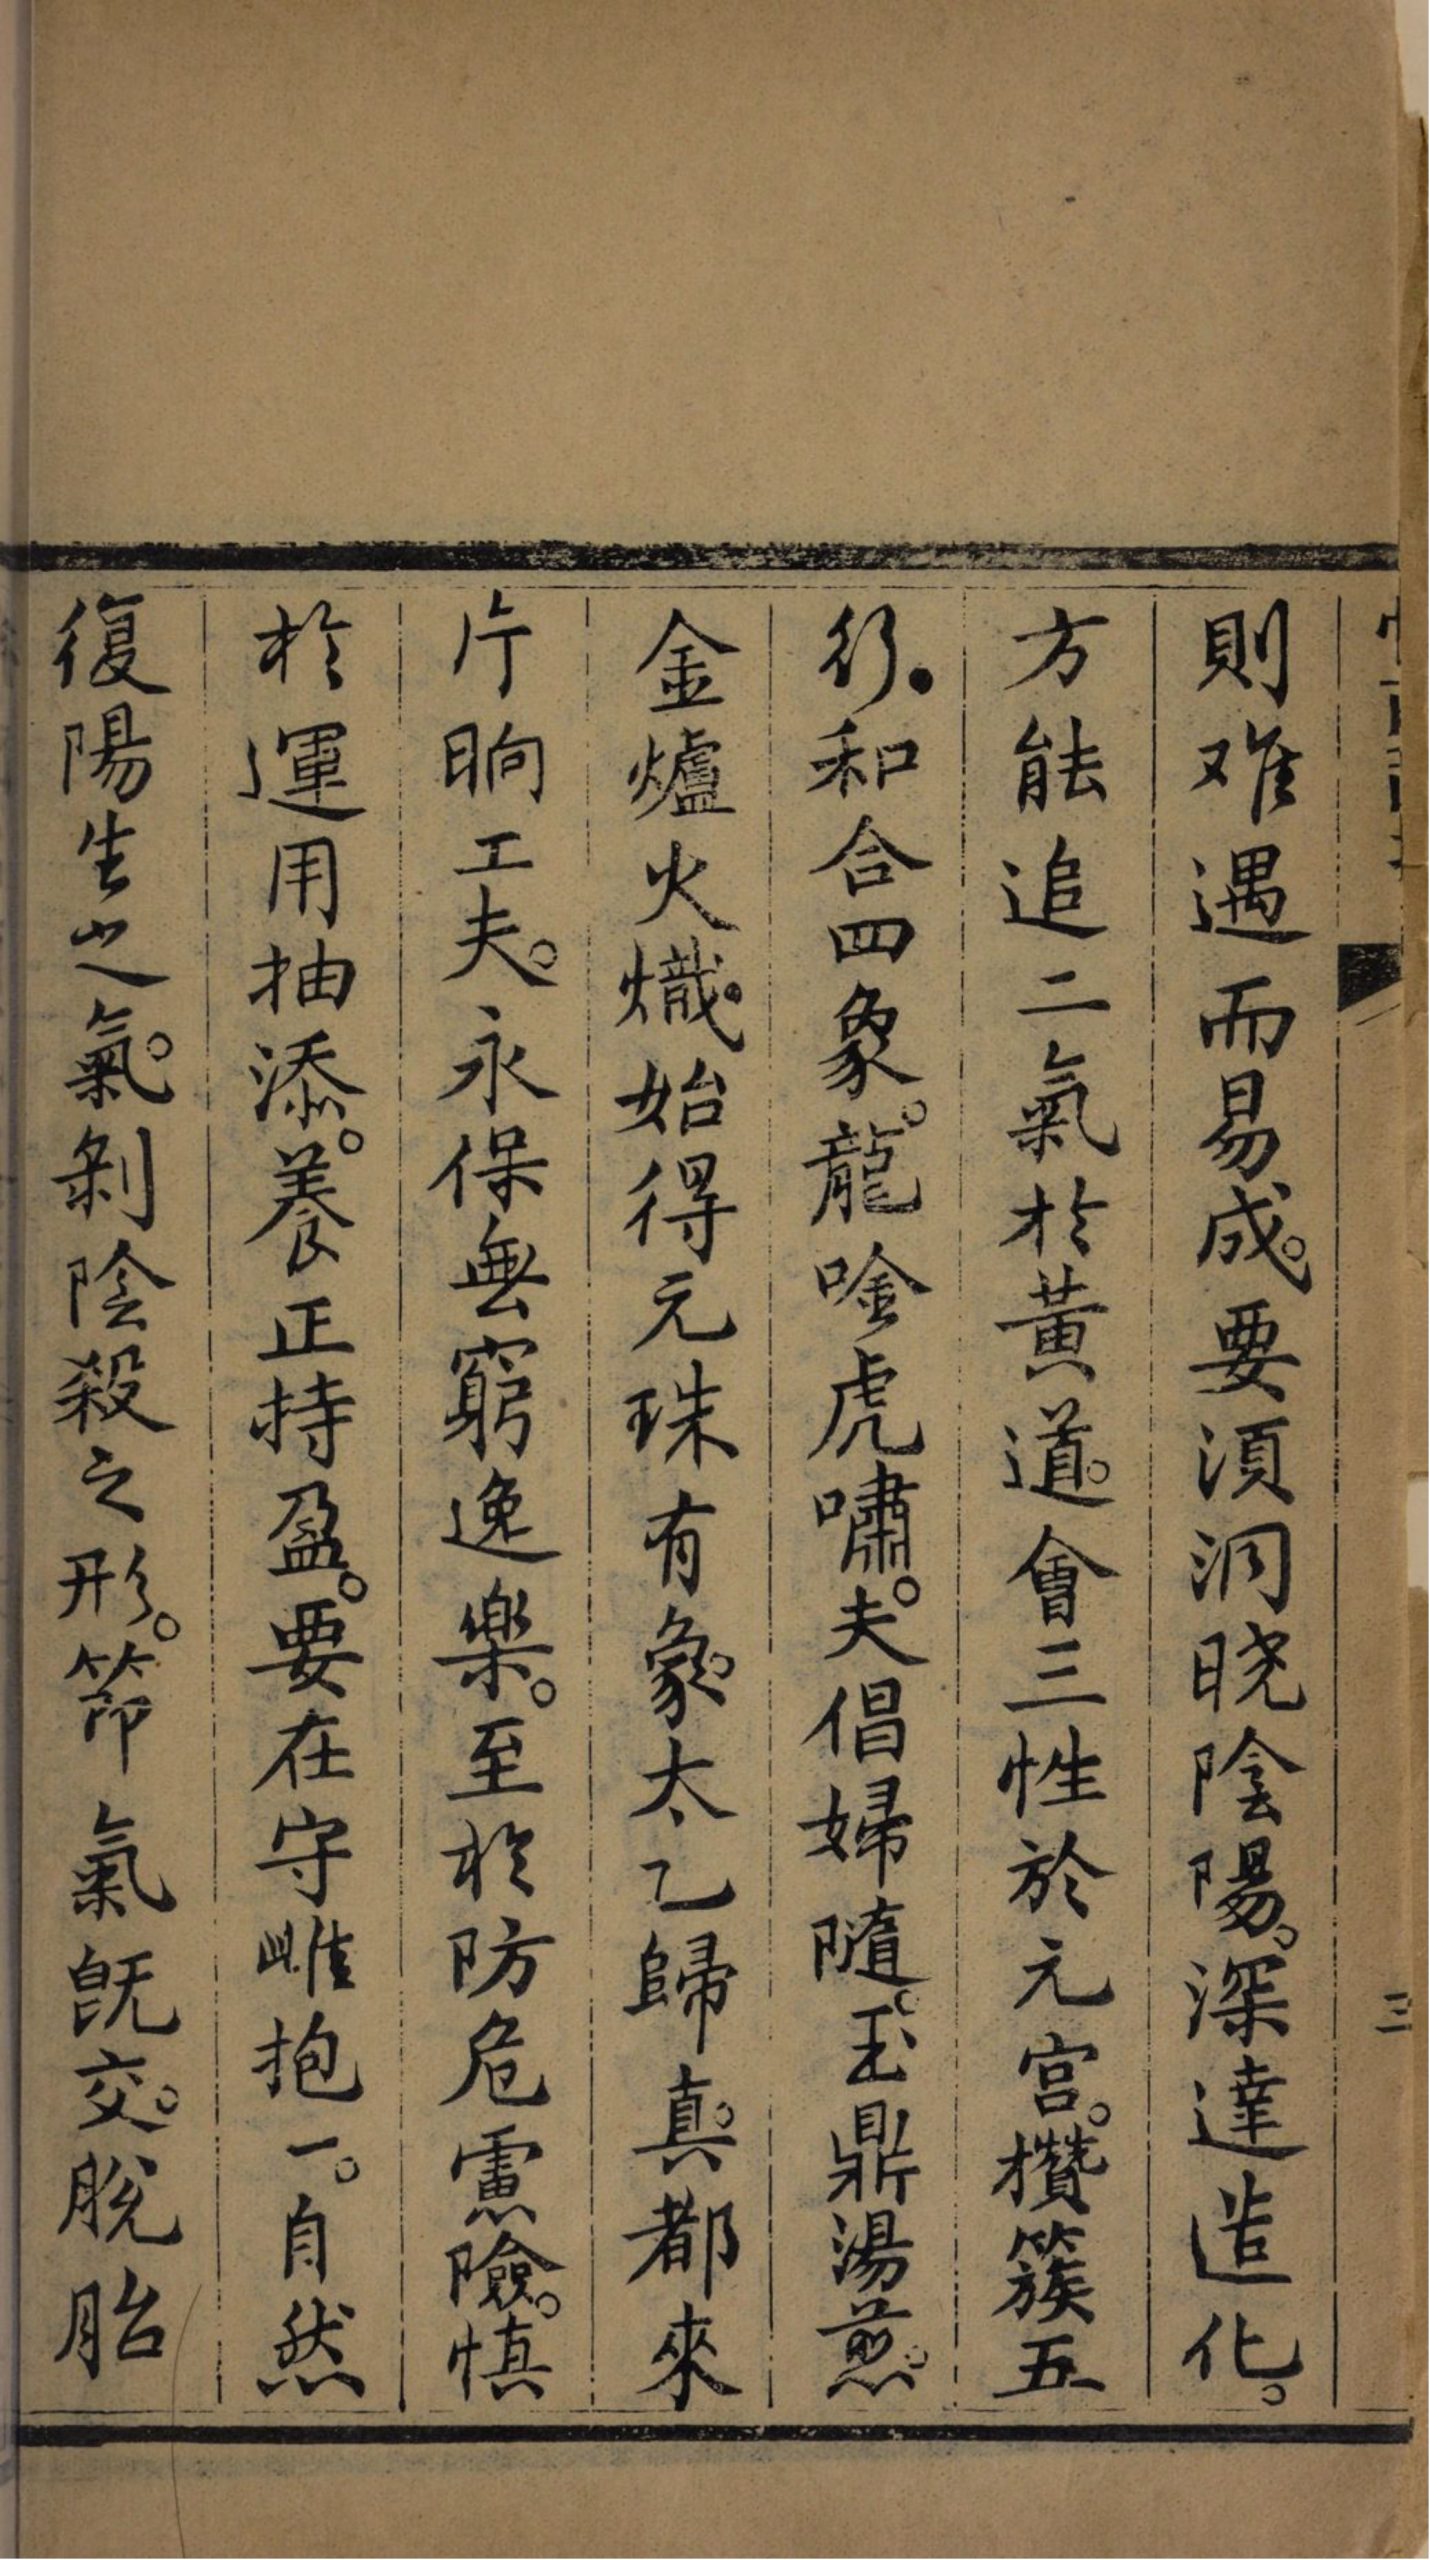 則难遇而易成。要湏洞晓陰陽。深達造化。
方能追二氣於黃道。會三性於元宮。攢簇五
行。和合四象。龍唫虎嘯。夫倡婦隨。玉鼎湯煎。
金爐火熾。始得元珠有象。太乙歸真。都來
片晌工夫。永保無窮逸樂。至於防危慮險。慎
於運用抽添。養正持盈。要在守雌抱一。自然
復陽生之氣。剝陰殺之形。節氣旣交。脫胎
三